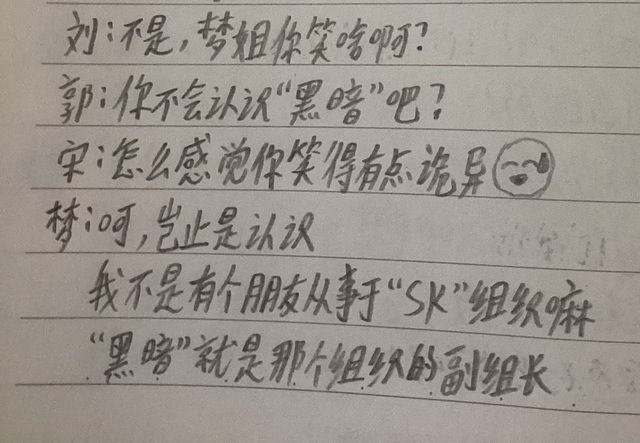 刘:不是,梦姐你笑啥啊?
郭:你不会认识“黑暗”吧?
宋:怎么感觉你笑得有点诡异
梦:呵,岂止是认识
我不是有个朋友从事于“SK”组织嘛
“黑暗”就是那个组织的副组长